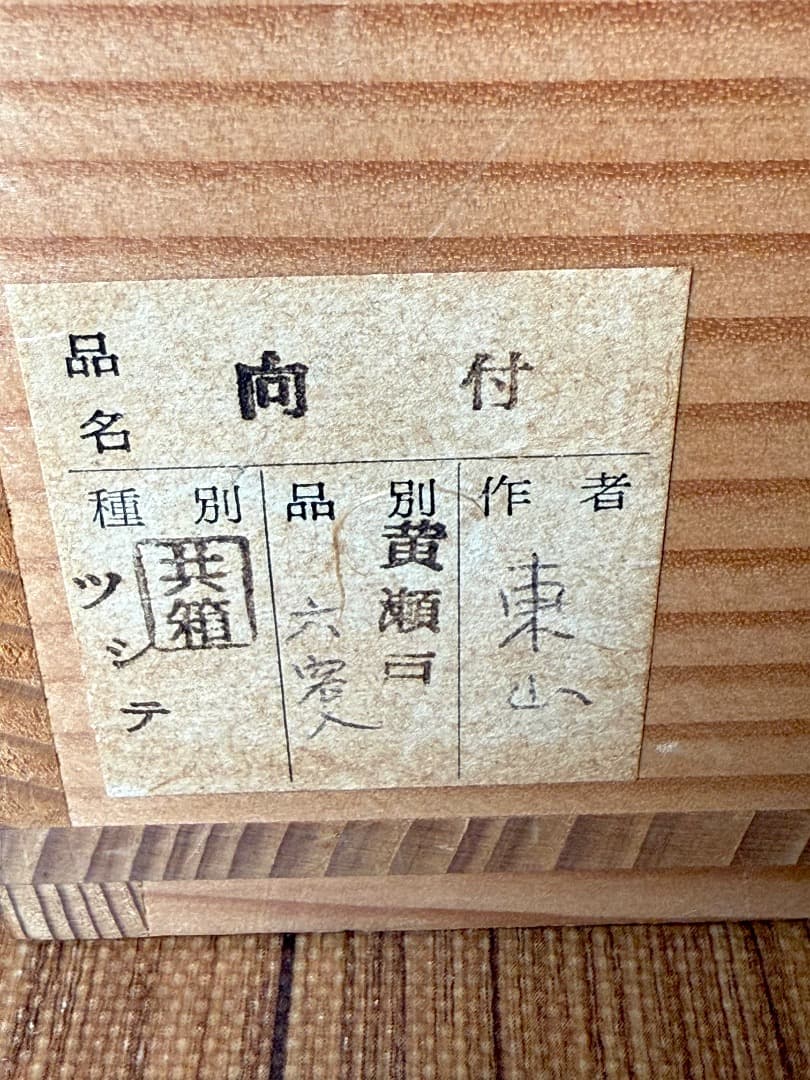 品名 向付
種別 品別 作者
共箱
ツシテ
黄瀬戸
六客入
東山